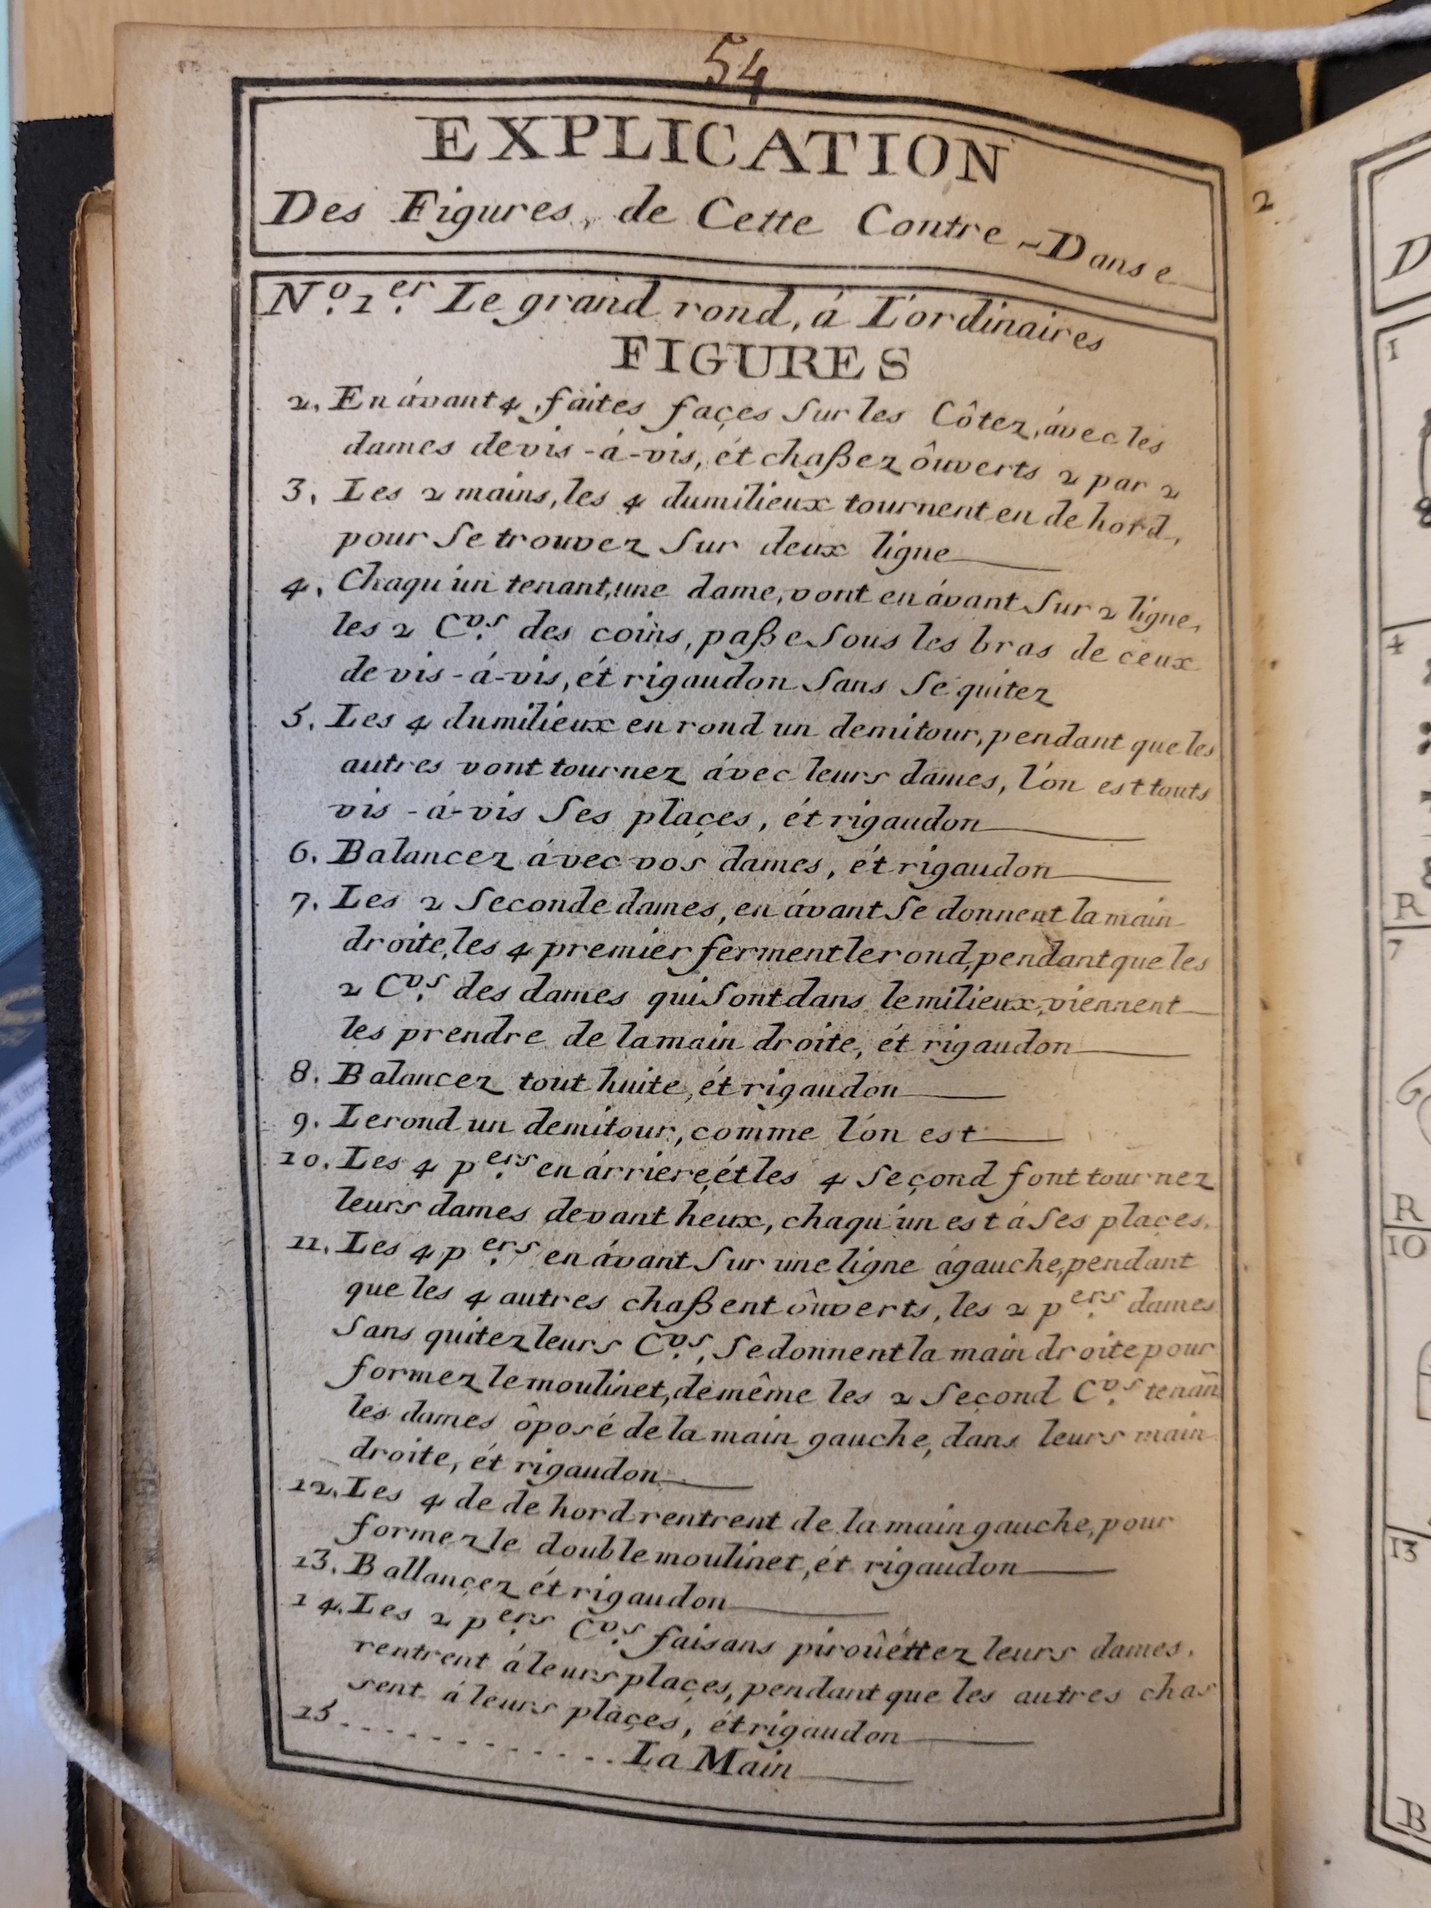 54
EXPLICATION
Des Figures, de Cette Contre-Danse
N.º 1.er Le grand rond, á L'ordinaires
FIGURES
2. En ávant 4, faites façes sur les Côtez, ávec les
dames devis-á-vis, ét chaßez ôuverts 2 par 2
3. Les 2 mains, les 4 dumilieux tournent en dehord,
pour se trouvez sur deux ligne
4. Chaqu'un tenant, une dame, vont en ávant sur 2 ligne,
les 2 C.vrs des coins, paße sous les bras de ceux
devis-á-vis, ét rigaudon sans se quitez
5. Les 4 dumilieux en rond un demitour, pendant que les
autres vont tournez ávec leurs dames, l'ón est touts
vis-á-vis ses plaçes, ét rigaudon
6. Balancez ávec vos dames, ét rigaudon
7. Les 2 Seconde dames, en ávant se donnent la main
droite, les 4 premier ferment le rond, pendant que les
2 C.vrs des dames qui sont dans le milieux, viennent
les prendre de la main droite, ét rigaudon
8. Balancez tout huite, ét rigaudon
9. Le rond un demitour, comme l'ón est
10. Les 4 p.ers en árriere, ét les 4 Seçond font tournez
leurs dames devant heux, chaqu'un est á ses plaçes.
11. Les 4 p.ers en ávant sur une ligne ágauche, pendant
que les 4 autres chaßent ôuverts, les 2 p.ers dames
sans quitez leurs C.vrs, se donnent la main droite pour
formez le moulinet, de même les 2 Seçond C.vrs tenañ
les dames ôposé de la main gauche, dans leurs main
droite, ét rigaudon
12. Les 4 de dehord rentrent de la main gauche, pour
formez le double moulinet, ét rigaudon
13. Ballançez ét rigaudon
14. Les 2 p.ers C.vrs faisans piroûéttez leurs dames,
rentrent á leurs plaçes, pendant que les autres chas
sent á leurs plaçes, ét rigaudon
15 . . . . . . . . . . . . La Main
2
D
1
4
R
7
R
10
13
B